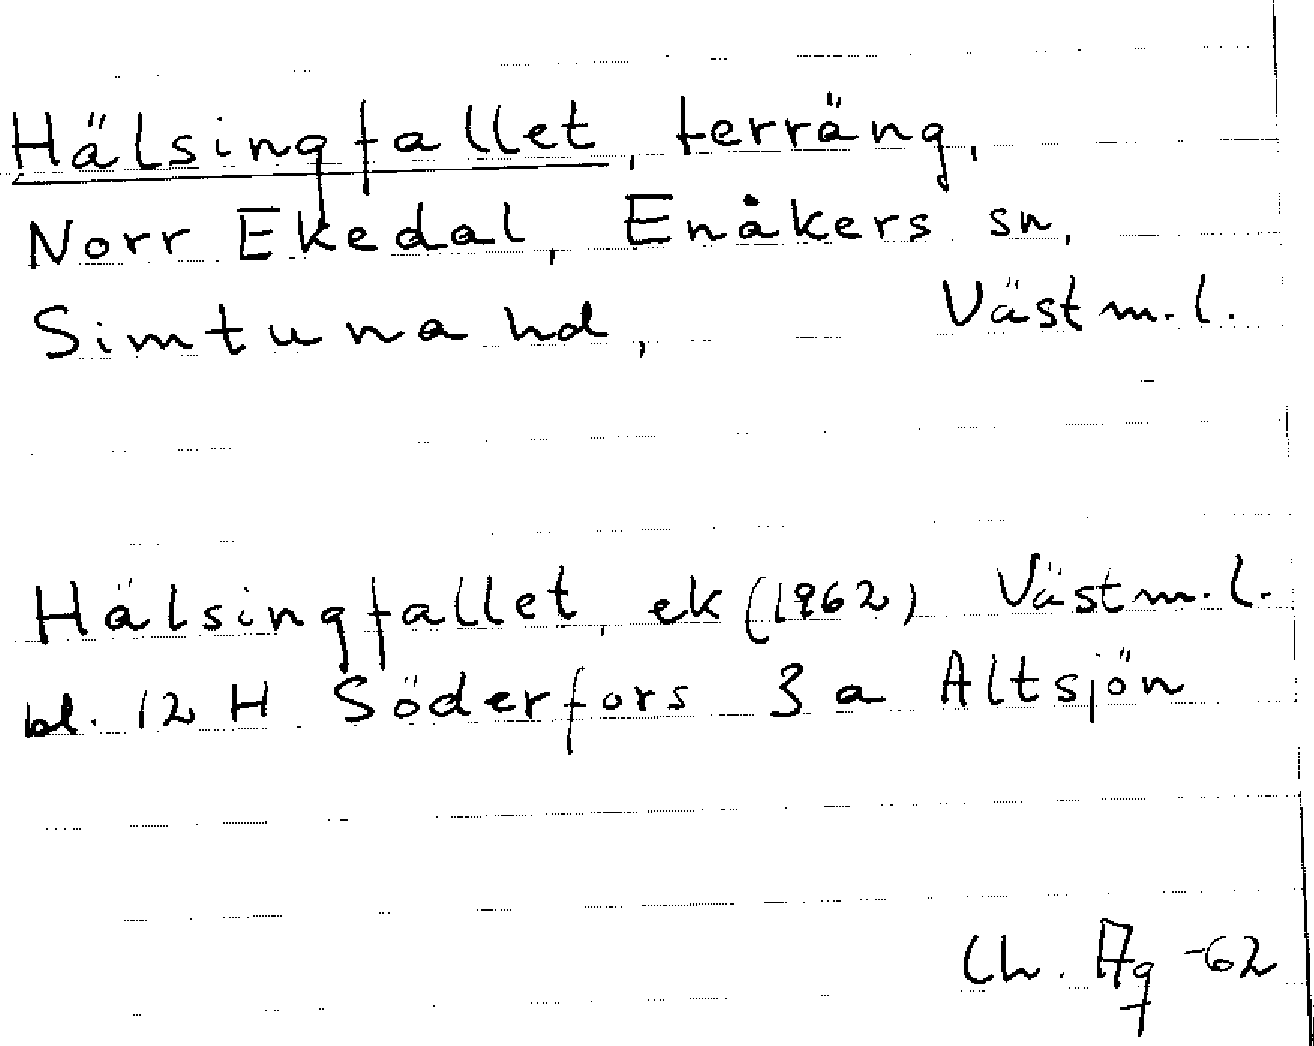 Hälsingfallet, terräng,
Norr Ekedal, Enåkers sn,
Simtuna hd, Västm. l.
Hälsingfallet, ek (1962) Västm. l.
bl. 12 H Söderfors 3 a Altsjön
Ch. -62